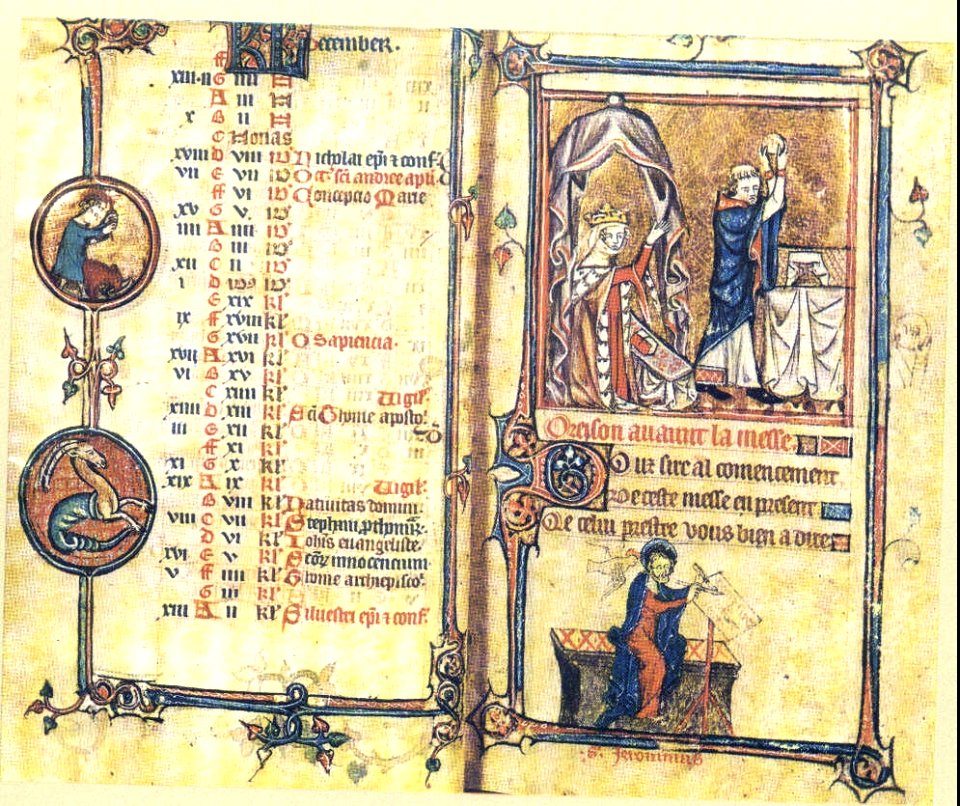 KL December.
ff
xiii·ii G iiii N
A iii N
x B ii N
C Nonas
xviii D viii id' Nicholai epi 7 conf.
vii E vii id' Oct' sci andree apli.
ff vi id' Concepcio Marie
xv G v id'
iiii A iiii id'
B iii id'
xii C ii id'
i D idus
E xix kl'
ix ff xviii kl'
G xvii kl' O Sapiencia.
xvii A xvi kl'
vi B xv kl'
C xiiii kl' Uigil'.
xiiii D xiii kl' Sci Thome apostoli
iii E xii kl'
ff xi kl'
xi G x kl'
xix A ix kl' Uigil'.
B viii kl' Natiuitas domini.
viii C vii kl' Stephani
D vi kl' Iohis euangeliste.
xvi E v kl' Scor innocencium
v ff iiii kl' Thome archiepisco'.
G iii kl'
xiii A ii kl' Siluestri epi 7 conf.
Oreison auaunt la messe.
Duz sire al comencement
De ceste messe en present
Qe celui prestre vous dira
S. Jeronimus